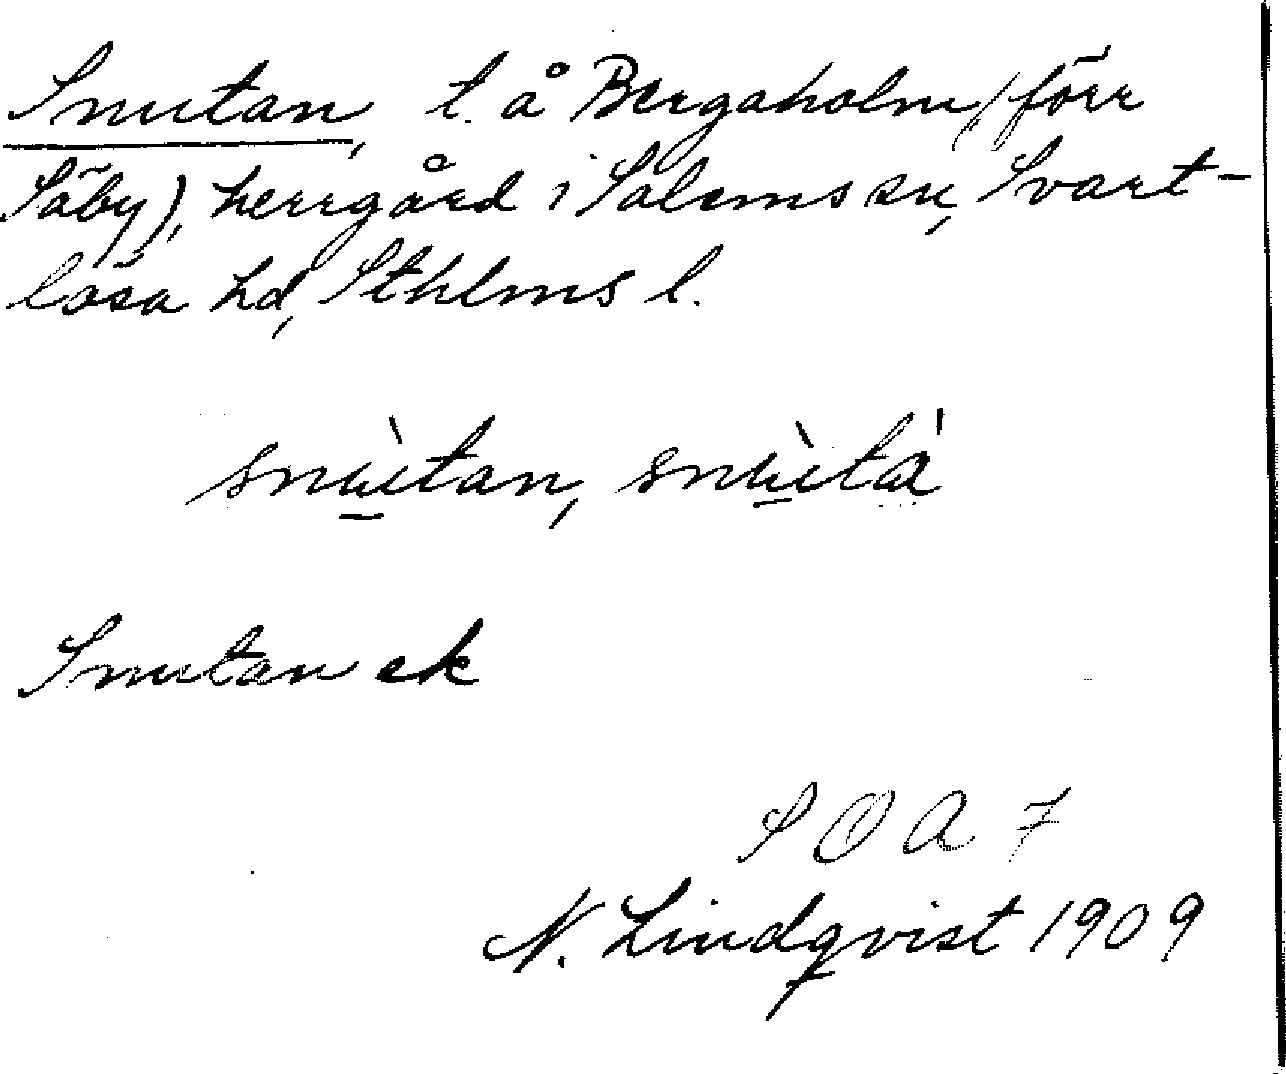 Snutan, t. å Bergaholm (förr
Säby), herrgård i Salems sn, Svart-
lösa hd, Sthlms l.
snùtan, snùtá
Snutan ek
SOA 7
N. Lindqvist 1909